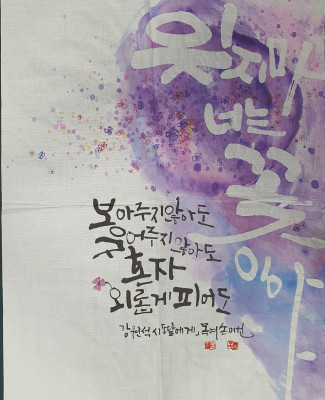 잊지마
너는
꽃
이야
보아주지않아도
웃어주지않아도
혼자
외롭게 피어도
강원석 시 딸에게,